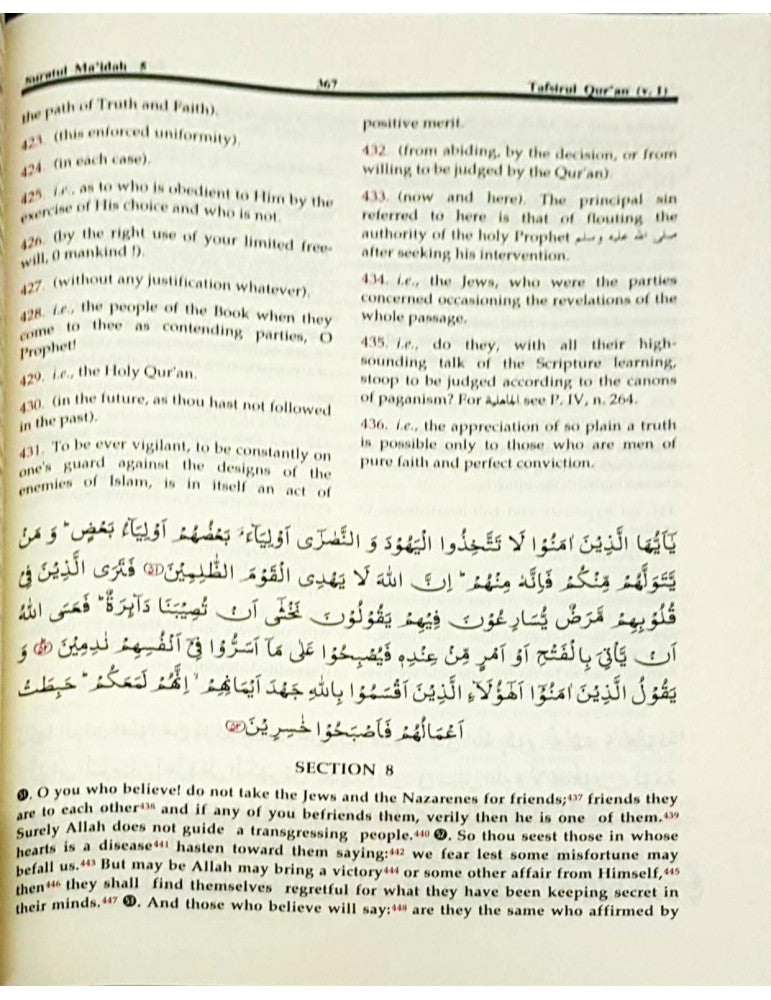 Suratul Ma'idah 5
367
Tafsirul Qur'an (v. 1)
the path of Truth and Faith).
423. (this enforced uniformity).
424. (in each case).
425. i.e., as to who is obedient to Him by the
exercise of His choice and who is not.
426. (by the right use of your limited free-
will, 0 mankind !).
427. (without any justification whatever).
428. i.e., the people of the Book when they
come to thee as contending parties, O
Prophet!
429. i.e., the Holy Qur'an.
430. (in the future, as thou hast not followed
in the past).
431. To be ever vigilant, to be constantly on
one's guard against the designs of the
enemies of Islam, is in itself an act of
positive merit.
432. (from abiding, by the decision, or from
willing to be judged by the Qur'an).
433. (now and here). The principal sin
referred to here is that of flouting the
authority of the holy Prophet صلى الله عليه وسلم
after seeking his intervention.
434. i.e., the Jews, who were the parties
concerned occasioning the revelations of the
whole passage.
435. i.e., do they, with all their high-
sounding talk of the Scripture learning,
stoop to be judged according to the canons
of paganism? For الجاهلية see P. IV, n. 264.
436. i.e., the appreciation of so plain a truth
is possible only to those who are men of
pure faith and perfect conviction.
يٰٓاَيُّهَا الَّذِيْنَ اٰمَنُوْا لَا تَتَّخِذُوا الْيَهُوْدَ وَ النَّصٰرٰٓى اَوْلِيَآءَ ۘ بَعْضُهُمْ اَوْلِيَآءُ بَعْضٍ ؕ وَ مَنْ
يَّتَوَلَّهُمْ مِّنْكُمْ فَاِنَّهٗ مِنْهُمْ ؕ اِنَّ اللّٰهَ لَا يَهْدِى الْقَوْمَ الظّٰلِمِيْنَ ﴿۵۱﴾ فَتَرَى الَّذِيْنَ فِيْ
قُلُوْبِهِمْ مَّرَضٌ يُّسَارِعُوْنَ فِيْهِمْ يَقُوْلُوْنَ نَخْشٰٓى اَنْ تُصِيْبَنَا دَآىِٕرَةٌ ؕ فَعَسَى اللّٰهُ
اَنْ يَّاْتِيَ بِالْفَتْحِ اَوْ اَمْرٍ مِّنْ عِنْدِهٖ فَيُصْبِحُوْا عَلٰى مَاۤ اَسَرُّوْا فِيْۤ اَنْفُسِهِمْ نٰدِمِيْنَ ﴿۵۲﴾ وَ
يَقُوْلُ الَّذِيْنَ اٰمَنُوْۤا اَهٰۤؤُلَآءِ الَّذِيْنَ اَقْسَمُوْا بِاللّٰهِ جَهْدَ اَيْمَانِهِمْ ۙ اِنَّهُمْ لَمَعَكُمْ ؕ حَبِطَتْ
اَعْمَالُهُمْ فَاَصْبَحُوْا خٰسِرِيْنَ ﴿۵۳﴾
SECTION 8
51. O you who believe! do not take the Jews and the Nazarenes for friends;437 friends they
are to each other438 and if any of you befriends them, verily then he is one of them.439
Surely Allah does not guide a transgressing people.440 52. So thou seest those in whose
hearts is a disease441 hasten toward them saying:442 we fear lest some misfortune may
befall us.443 But may be Allah may bring a victory444 or some other affair from Himself,445
then446 they shall find themselves regretful for what they have been keeping secret in
their minds.447 53. And those who believe will say:448 are they the same who affirmed by